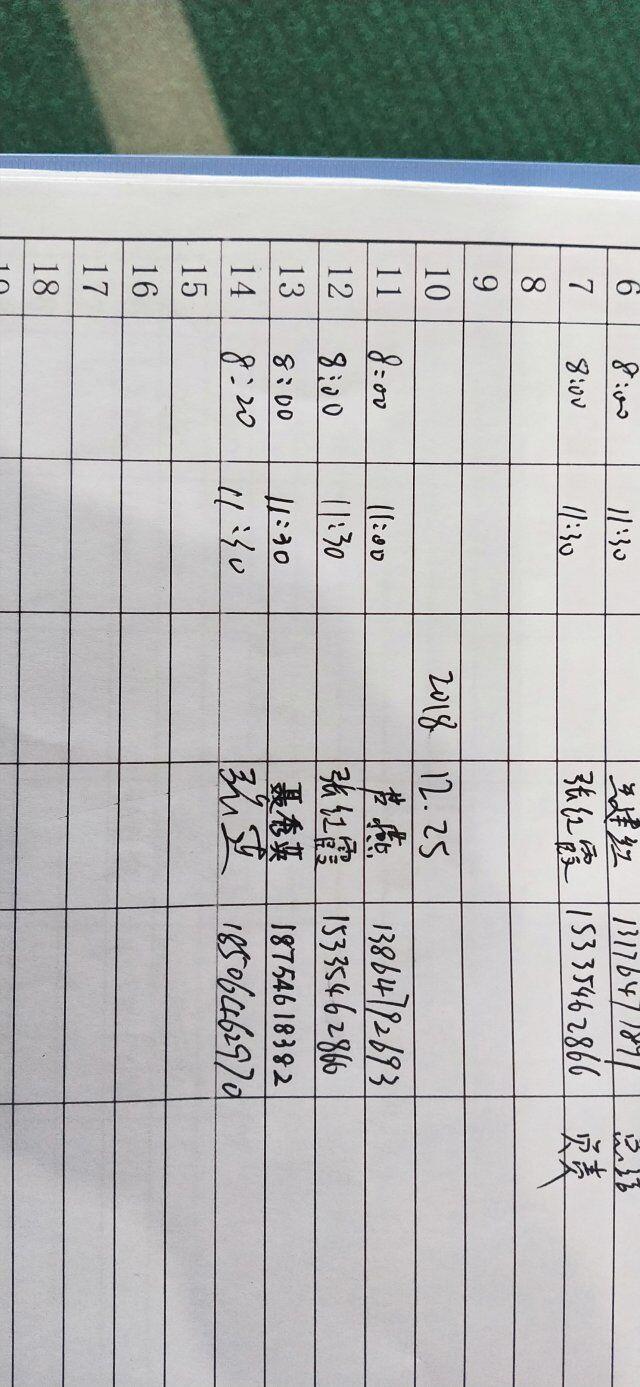 6 8:00 11:30
7 8:00 11:30 张红霞 15335462866
8
9
10 2018 12.25
11 8:00 11:00 13864792693
12 8:00 11:30 张红霞 15335462866
13 8:00 11:30 聂秀英 18754618382
14 8:20 11:30 18506462970
15
16
17
18